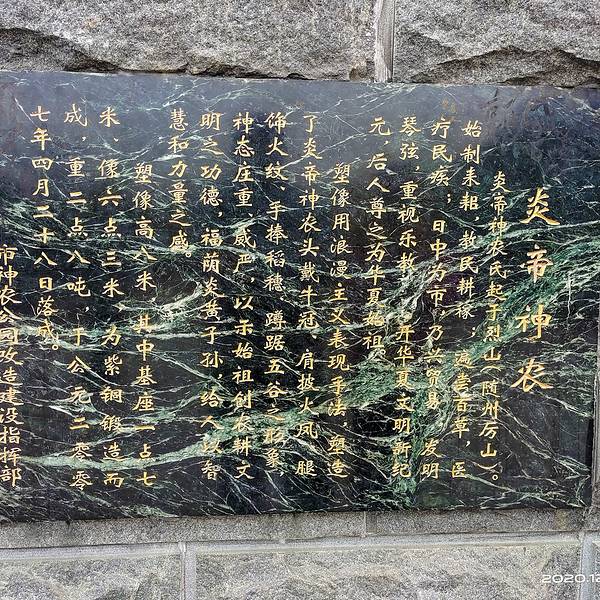 炎帝神农
炎帝神农氏起于烈山(随州厉山)。
始制耒耜，教民耕稼；遍尝百草，医
疗民疾；日中为市，乃兴贸易，发明
琴弦，重视乐教，开华夏文明新纪
元，后人尊之为华夏始祖。
塑像用浪漫主义表现手法，塑造
了炎帝神农头戴牛冠、肩披火凤、腿
饰火纹、手捧稻穗、蹲踞五谷之形象，
神态庄重、威严，以示始祖创农耕文
明之功德，福荫炎黄子孙，给人以智
慧和力量之感。
塑像高八米，其中基座一点七
米、像六点三米，为紫铜锻造而
成，重二点八吨，于公元二零零
七年四月二十八日落成。
市神农公园改造建设指挥部
2020.12